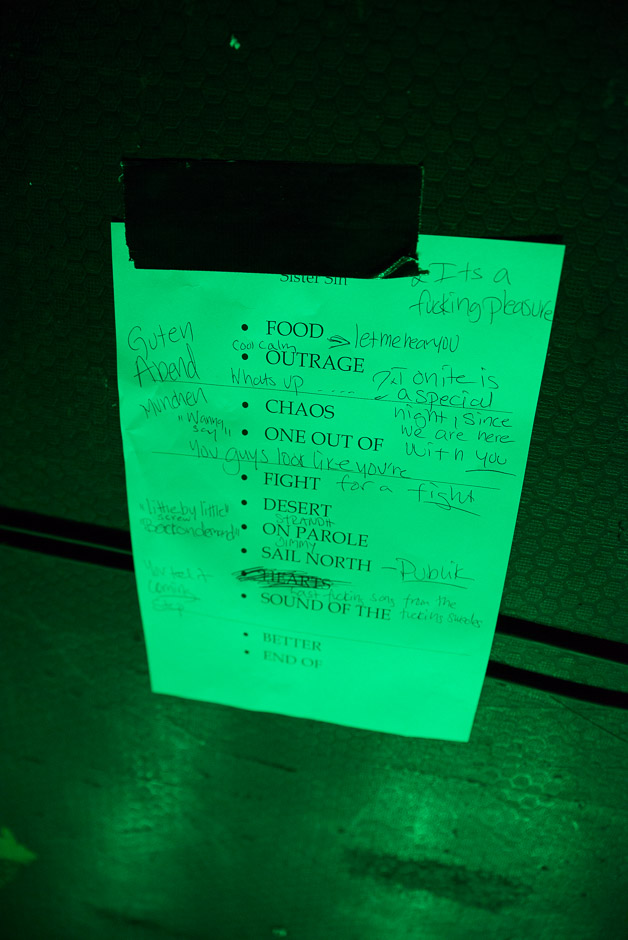 Sister Sin
& Its a
fucking pleasure
• FOOD → let me hear YOU
Guten
Abend
München
cool calm
• OUTRAGE
Whats up ......
Tonite is
a special
night, since
we are here
with you
• CHAOS
"Wanna
say"
• ONE OUT OF
You guys look like you're
• FIGHT for a fight
• DESERT
"little by little"
screw
STRANDH
• ON PAROLE
Jimmy
• SAIL NORTH - Publik
• HEARTS
You feel it
coming
Best fucking song from the
fucking swedes
• SOUND OF THE
• BETTER
• END OF